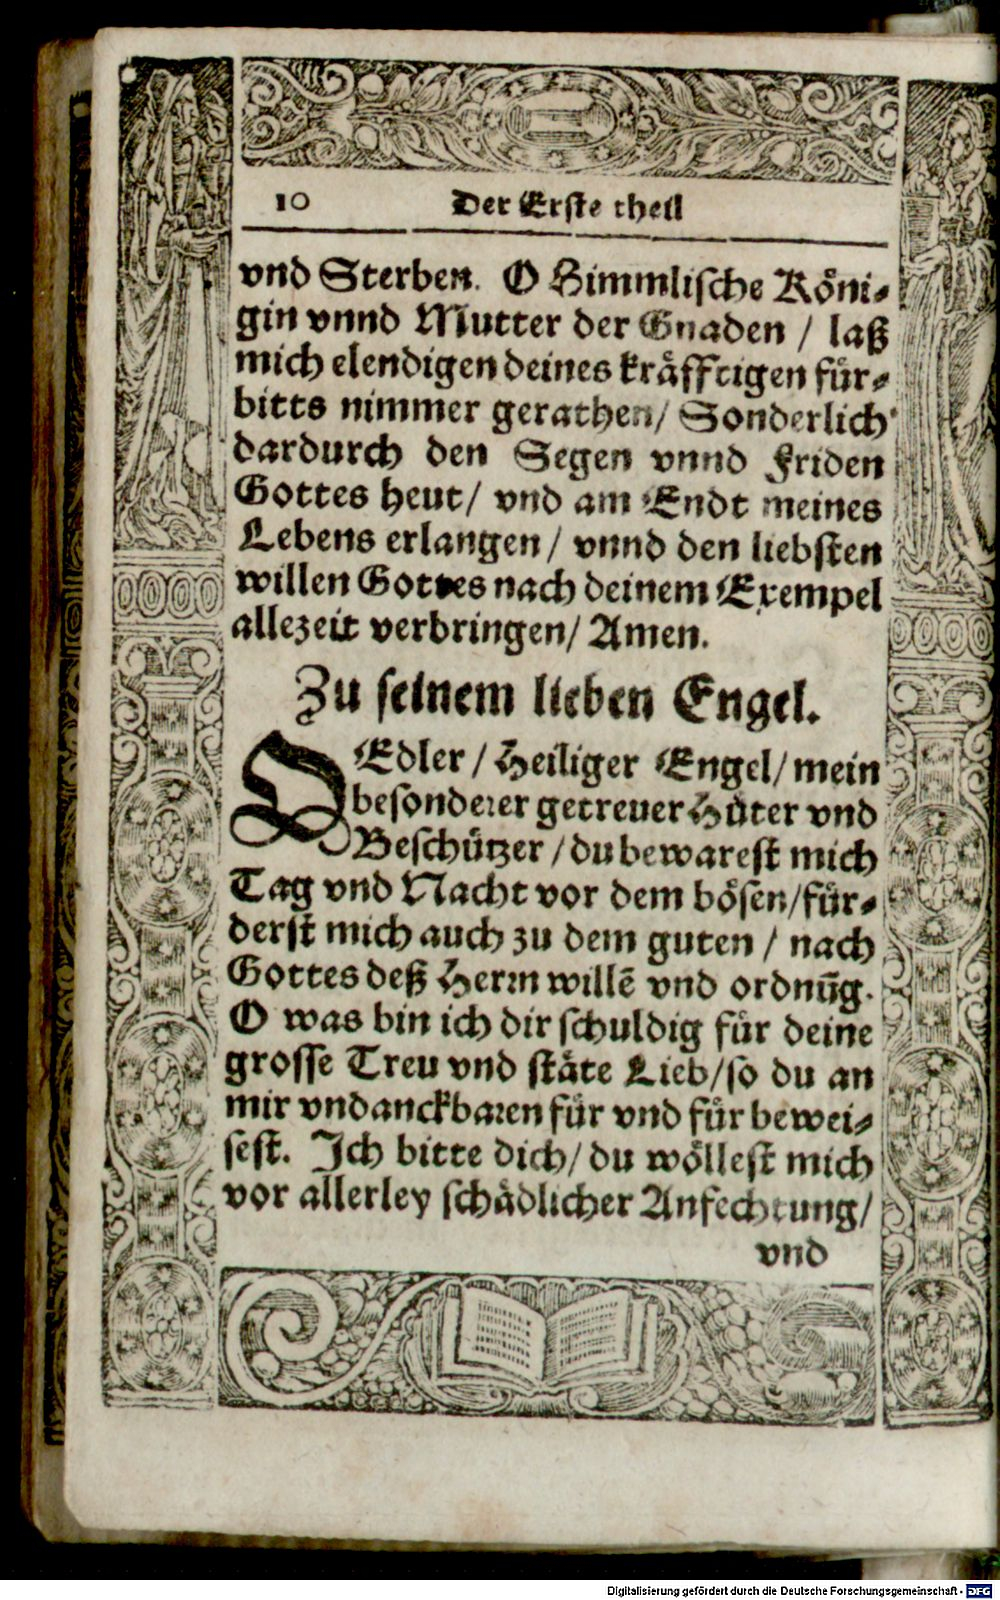 10 Der Erste theil
vnd Sterben. O Himmlische Köni-
gin vnnd Mutter der Gnaden / laß
mich elendigen deines kräfftigen für-
bitts nimmer gerathen/ Sonderlich
dardurch den Segen vnnd Friden
Gottes heut/ vnd am Endt meines
Lebens erlangen / vnnd den liebsten
willen Gottes nach deinem Exempel
allezeit verbringen/ Amen.
Zu seinem lieben Engel.
O Edler / Heiliger Engel/ mein
besonderer getreuer Hüter vnd
Beschützer / du bewarest mich
Tag vnd Nacht vor dem bösen/für-
derst mich auch zu dem guten / nach
Gottes deß Herrn willē vnd ordnūg.
O was bin ich dir schuldig für deine
grosse Treu vnd stäte Lieb/so du an
mir vndanckbaren für vnd für bewei-
sest. Ich bitte dich/ du wöllest mich
vor allerley schädlicher Anfechtung/
vnd
Digitalisierung gefördert durch die Deutsche Forschungsgemeinschaft - DFG